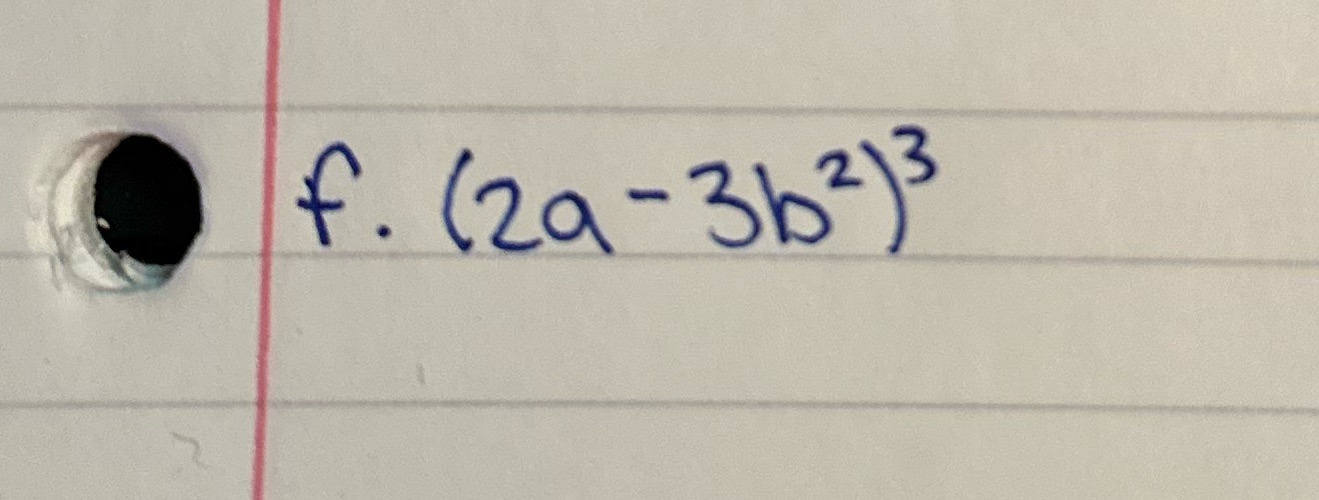 f. (2a - 3b²)³